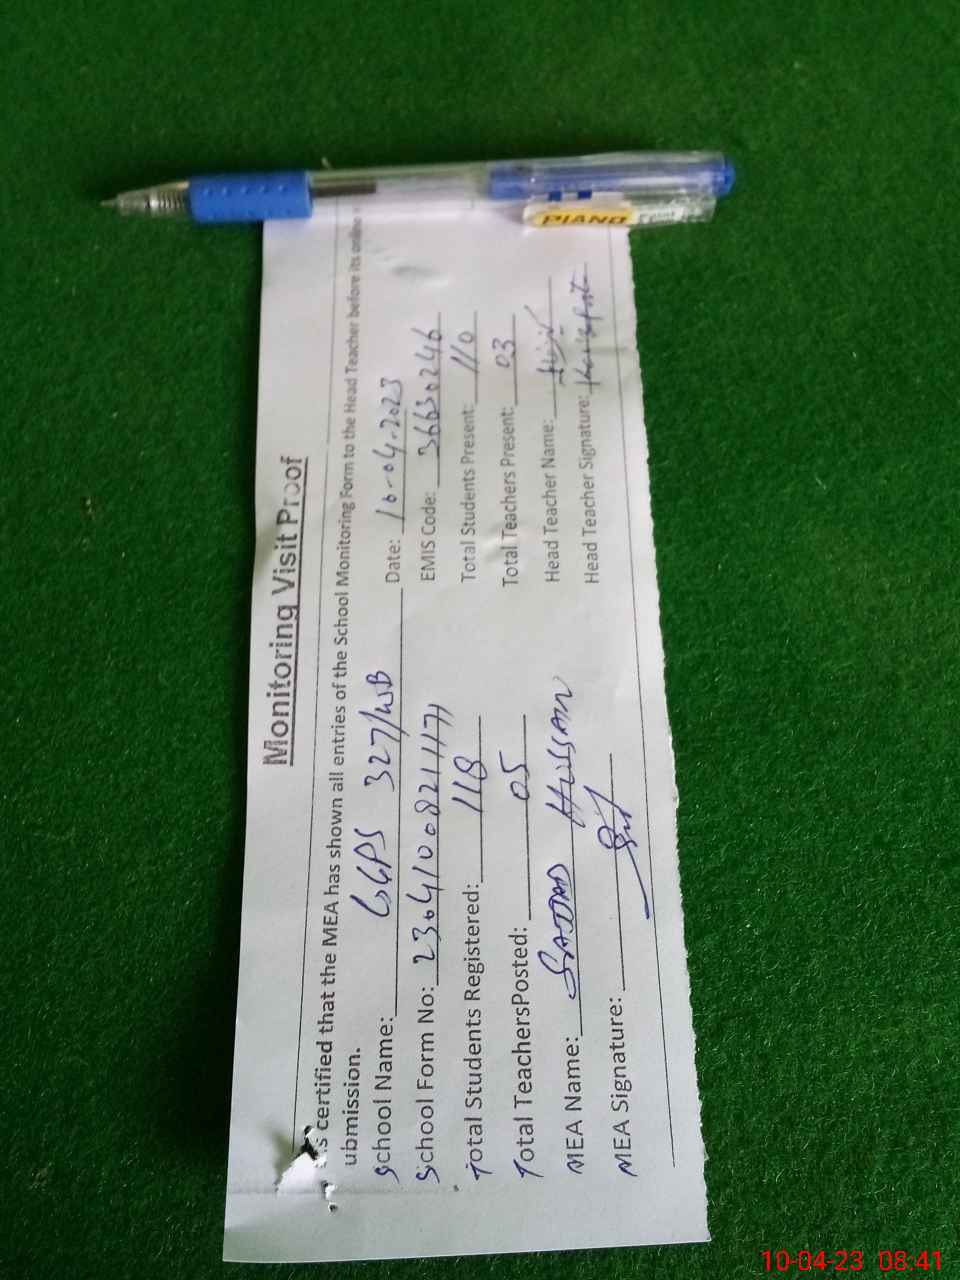 Monitoring Visit Proof
is certified that the MEA has shown all entries of the School Monitoring Form to the Head Teacher before its online
ubmission.
School Name: GGPS 327/WB Date: 10-04-2023
School Form No: 2304100821117 EMIS Code: 36630246
Total Students Registered: 118 Total Students Present: 110
Total TeachersPosted: 05 Total Teachers Present: 03
MEA Name: SAJJAD HUSSAIN Head Teacher Name:
MEA Signature: Head Teacher Signature:
PIANO
10-04-23 08:41